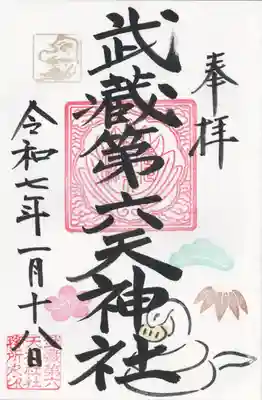 奉拝
武蔵第六天神社
令和七年一月十八日
武蔵第六
天神社
務所之印